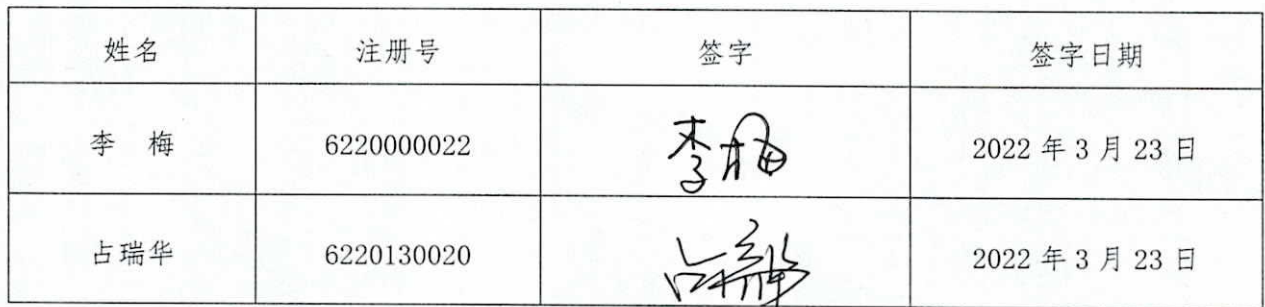 姓名 注册号 签字 签字日期
李 梅 6220000022 李梅 2022 年 3 月 23 日
占瑞华 6220130020 占瑞华 2022 年 3 月 23 日